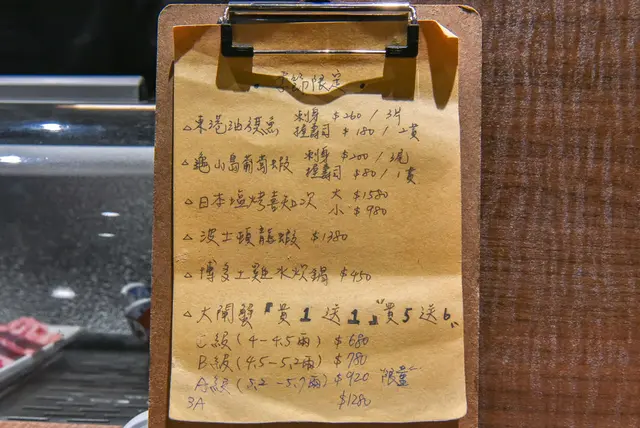 • 季節限定 •
△東港油魚 刺身 $260 / 3片
握壽司 $180 / 2貫
△龜山島葡萄蝦 刺身 $200 / 3尾
握壽司 $80 / 1貫
△日本塩烤喜知次 大 $1580
小 $980
△波士頓龍蝦 $1380
△博多土雞水炊鍋 $450
△大閘蟹『買1送1』"買5送6"
C級(4-4.5兩) $680
B級(4.5-5.2兩) $780
A級(5.2-5.7兩) $920 "限量"
3A $1280